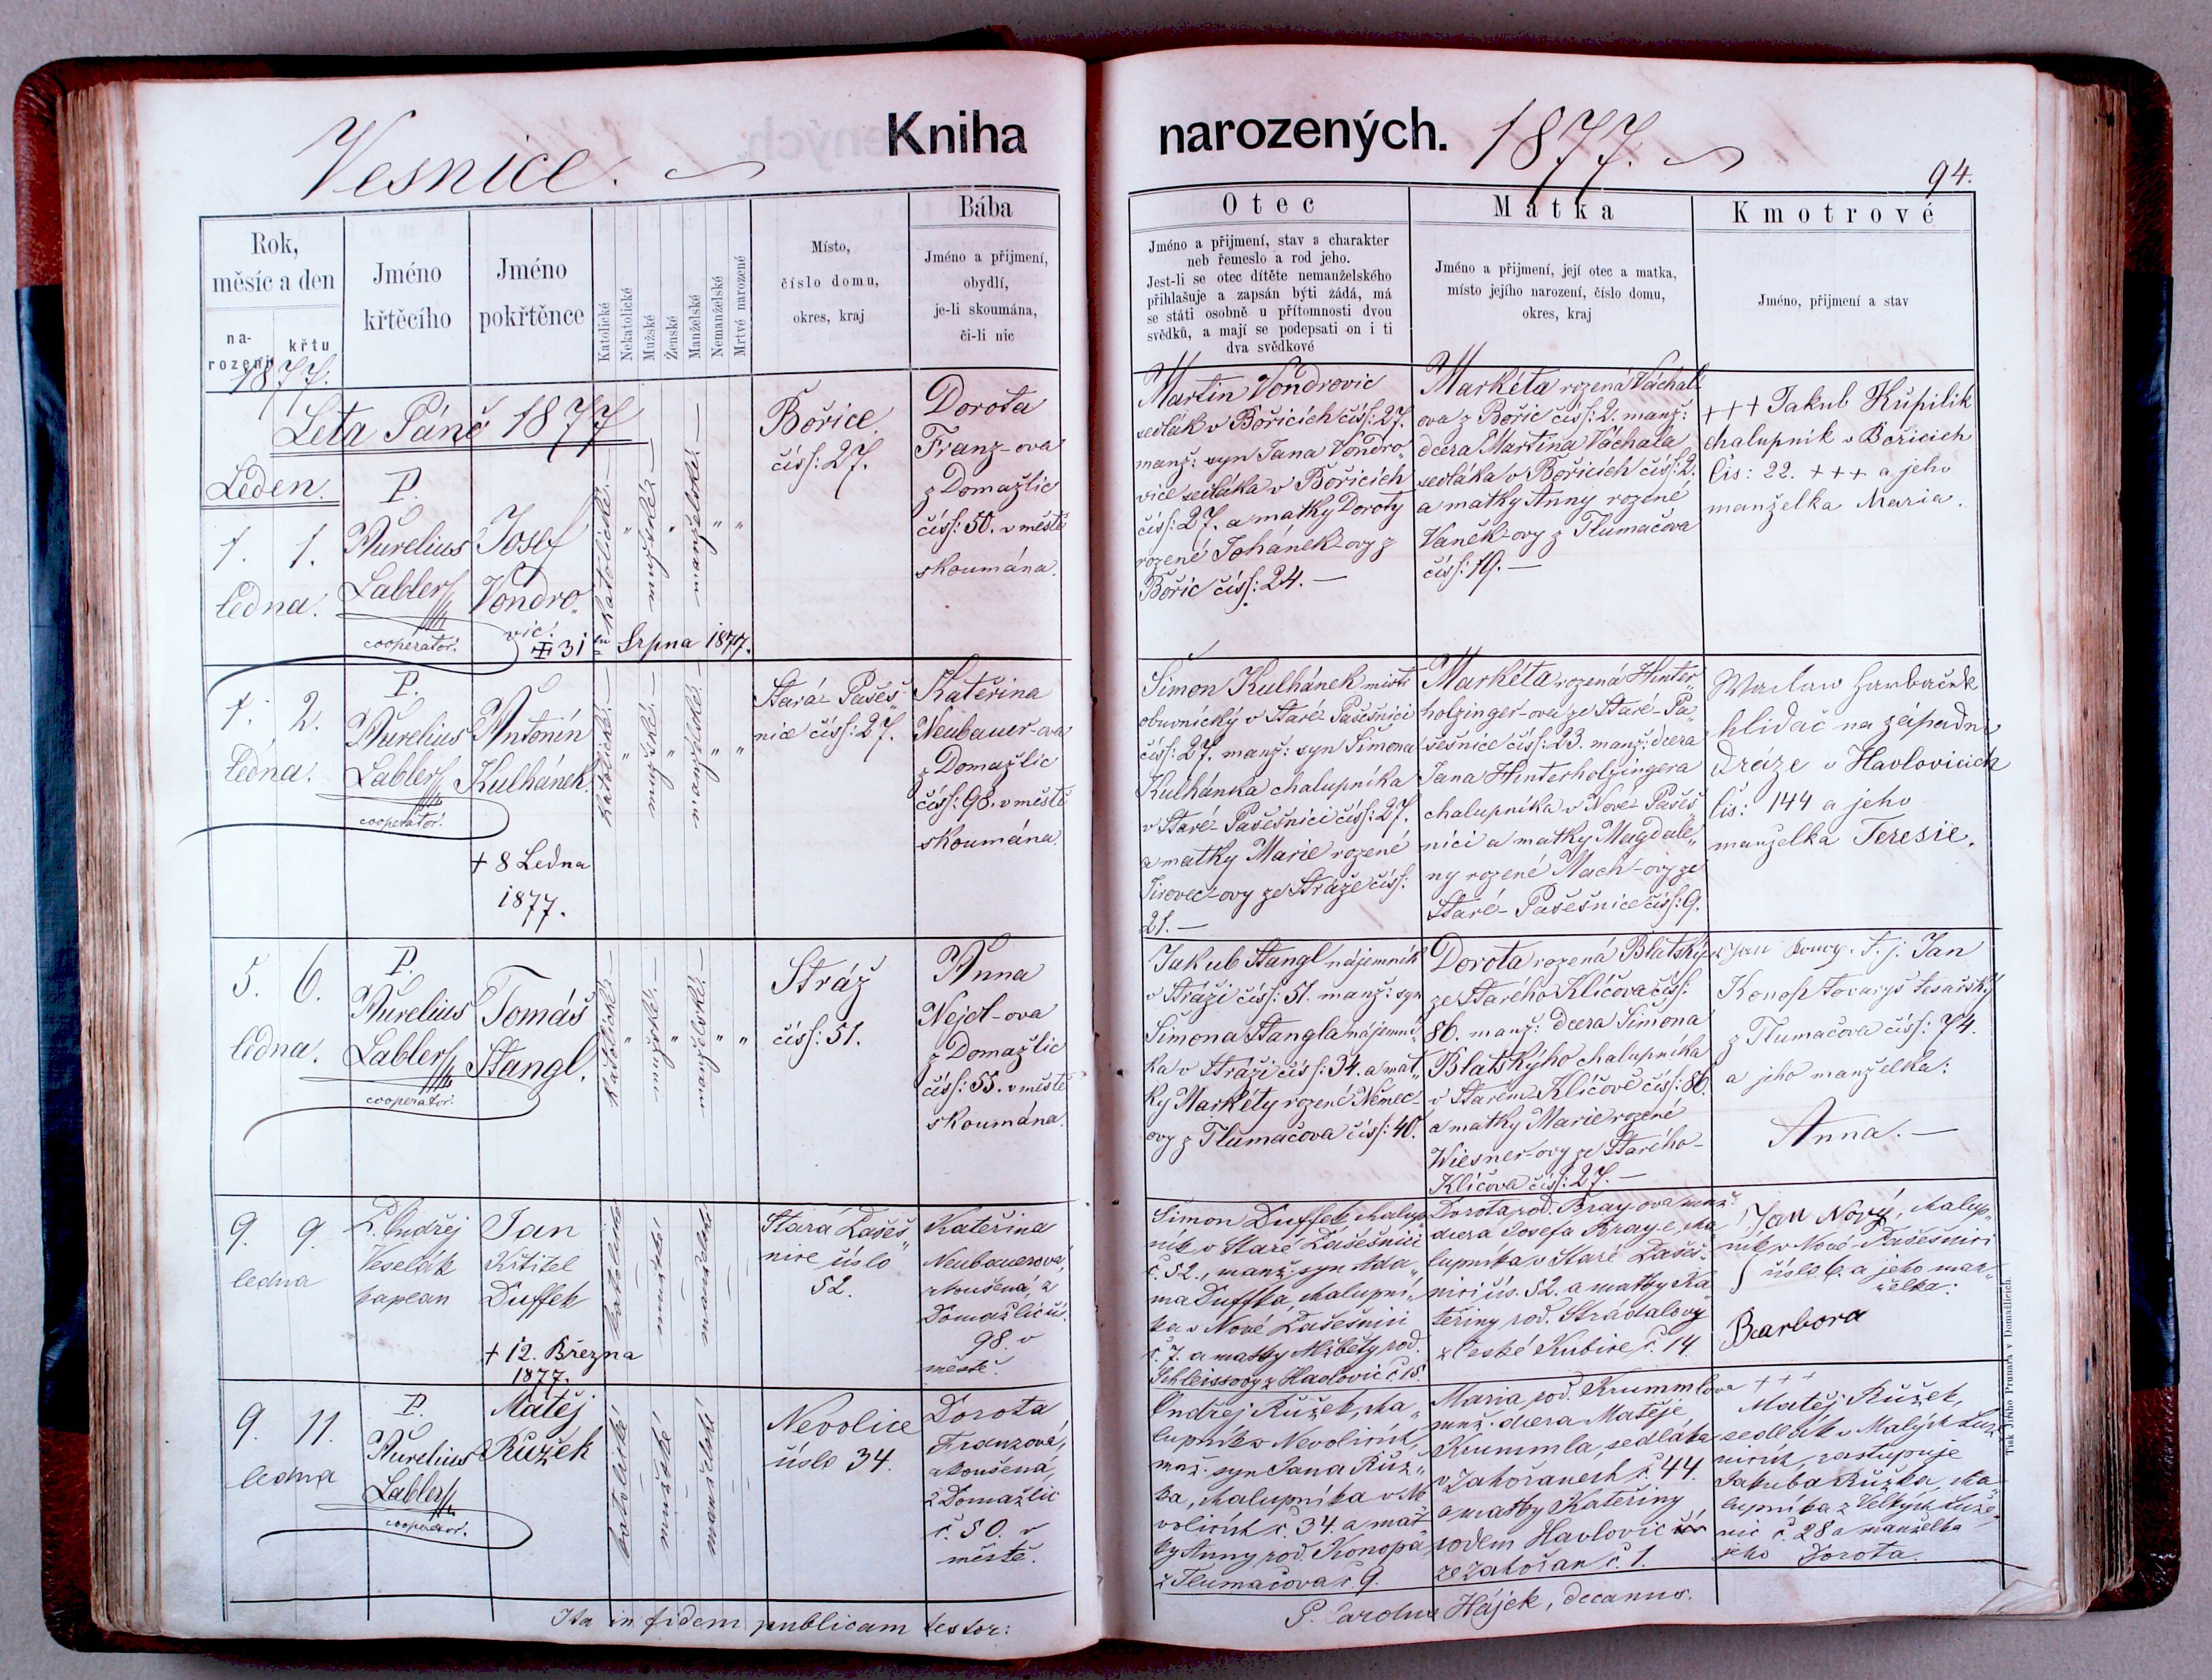 Vesnice.
Kniha
narozených.
1877.
94.
Rok,
měsíc a den
na-
rození
křtu
Jméno
křtěcího
Jméno
pokřtěnce
Katolické
Nekatolické
Mužské
Ženské
Manželské
Nemanželské
Mrtvě narozené
Místo,
číslo domu,
okres, kraj
Bába
Jméno a přijmení,
obydlí,
je-li skoumána,
či-li nic
Otec
Jméno a přijmení, stav a charakter
neb řemeslo a rod jeho.
Jest-li se otec dítěte nemanželského
přihlašuje a zapsán býti žádá, má
se státi osobně u přítomnosti dvou
svědků, a mají se podepsati on i ti
dva svědkové
Matka
Jméno a přijmení, její otec a matka,
místo jejího narození, číslo domu,
okres, kraj
Kmotrové
Jméno, přijmení a stav
1877.
Leta Páně 1877
Leden.
1. 1.
ledna.
P.
Aurelius
Labler
cooperator.
Josef
Vondro„
vic.
31 Srpna 1877.
katolické
"
mužské
"
manželské
"
"
Bořice
čísl: 27.
Dorota
Franz-ova
z Domažlic
čísl: 50. v městě
skoumána.
Martin Vondrovic
sedlák v Bořicích čísl: 27.
manž: syn Jana Vondro„
vice sedláka v Bořicích
čísl: 27. a matky Doroty
rozené Johánek-ovy z
Bořic čísl: 24. —
Markéta rozená Váchal
ova z Bořic čísl: 2. manž:
dcera Martina Váchala
sedláka v Bořicích čísl: 2.
a matky Anny rozené
Vaněk-ovy z Tlumačova
čísl: 19. —
+++ Jakub Kupilik
chalupník v Bořicich
čís: 22. +++ a jeho
manželka Maria.
1. 2.
ledna.
P.
Aurelius
Labler
cooperator.
Antonín
Kulhánek.
+ 8 Ledna
1877.
katolické
"
mužské
"
manželské
"
"
Stará-Pašeš„
nice čísl: 27.
Kateřina
Neubauer-ova
z Domažlic
čísl: 98. v městě
skoumána.
Šimon Kulhánek mistr
obuvnický v Staré-Pašešnici
čísl: 27. manž: syn Šimona
Kulhánka chalupníka
v Staré-Pašešnici čísl: 27.
a matky Marie rozené
Jirovec-ovy ze Stráže čísl:
21. —
Markéta rozená Hinter„
holzinger-ova ze Staré-Pa„
šešnice čísl: 23. manž: dcera
Jana Hinterholzingera
chalupníka v Nové-Pašeš„
nici a matky Magdalé„
ny rozené Mach-ovy ze
Staré-Pašešnice čísl: 9.
hlídač na západní
dráze v Havlovicich
čis: 144 a jeho
manželka Teresie.
5. 6.
ledna.
P.
Aurelius
Labler
cooperator.
Tomáš
Stangl.
katolické
"
mužské
"
manželské
"
"
Stráž
čísl: 51.
Anna
Nejdl-ova
z Domažlic
čísl: 55. v městě
skoumána.
Jakub Stangl nájemník
v Stráži čísl: 51. manž: syn
Šimona Stangla nájemní„
ka v Stráži čísl: 34. a mat„
ky Markéty rozené Němec-
ovy z Tlumačova čísl: 40.
Dorota rozená Blatský
ze Starého Klíčova čísl:
86. manž: dcera Šimona
Blatskýho chalupníka
v Starém-Klíčově čísl: 86.
a matky Marie rozené
Wiesner-ovy ze Starého-
Klíčova čísl: 27. —
t. j. Jan
Konop tovaryš tesařský
z Tlumačova čísl: 74.
a jeho manželka:
Anna. —
9. 9.
ledna
P. Ondřej
Veselák
kaplan
Jan
Křtitel
Duffek
+ 12. Března
1877.
katolické
mužské
manželské
Stará Pašeš„
nice číslo
52.
Kateřina
Neubauerová,
zkoušená, z
Domažlic čís.
98. v
městě.
Šimon Duffek chalup„
ník v Staré Pašešnici
č. 52., manž. syn Ada„
ma Duffka, chalupní„
ka v Nové Pašešnici
č. 7. a matky Alžběty rod.
Schleissovy z Havlovic č. 15.
Dorota rod. Bray-ova manž.
dcera Josefa Braye, cha„
lupníka v Staré Pašeš„
nici čís. 52. a matky Ka„
teřiny rod. Strádalovy
z České Kubice č. 14.
Jan Nový, chalup„
ník v Nové-Pašešnici
číslo 6. a jeho man„
želka:
Barbora
9. 11.
ledna
P.
Aurelius
Labler
cooperator.
Matěj
Růžek
katolické
mužské
manželské
Nevolice
číslo 34.
Dorota
Franzová,
zkoušená,
z Domažlic
č. 50. v
městě.
Ondřej Růžek, cha„
lupník v Nevolicích,
manž. syn Jana Růž„
ka, chalupníka v Ne
volicích č. 34. a mat
ky Anny rod. Konopa
z Tlumačova č. 9.
Maria, rod. Krummlova
manž. dcera Matěje
Krummla, sedláka
v Zahořanech č. 44.
a matky Kateřiny
rodem Havlovic
ze Zahořan č. 1.
+++
Matěj Růžek,
sedlák v Malých Luže
nicích, zastupuje
Jakuba Růžka, cha„
lupníka z Velkých Luže„
nic č. 28 a manželka
jeho Dorota.
Ita in fidem publicam testor:
P. Carolus Hájek, decanus.
Tisk Jiřího Prunara v Domažlicích.